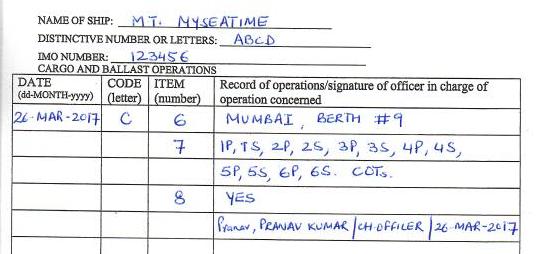 NAME OF SHIP: MT. MYSEATIME
DISTINCTIVE NUMBER OR LETTERS: ABCD
IMO NUMBER: 123456
CARGO AND BALLAST OPERATIONS
DATE (dd-MONTH-yyyy) CODE (letter) ITEM (number) Record of operations/signature of officer in charge of operation concerned
26-MAR-2017 C 6 MUMBAI, BERTH #9
7 1P, 1S, 2P, 2S, 3P, 3S, 4P, 4S,
5P, 5S, 6P, 6S. COTs.
8 YES
Pranav, PRANAV KUMAR | CH.OFFICER | 26-MAR-2017